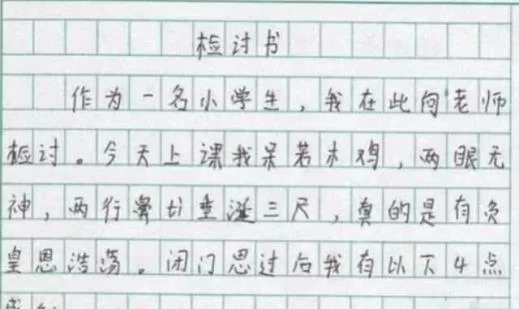 检讨书
作为一名小学生，我在此向老师
检讨。今天上课我呆若木鸡，两眼无
神，两行垂涎三尺，真的是有负
皇恩浩荡。闭门思过后我有以下4点